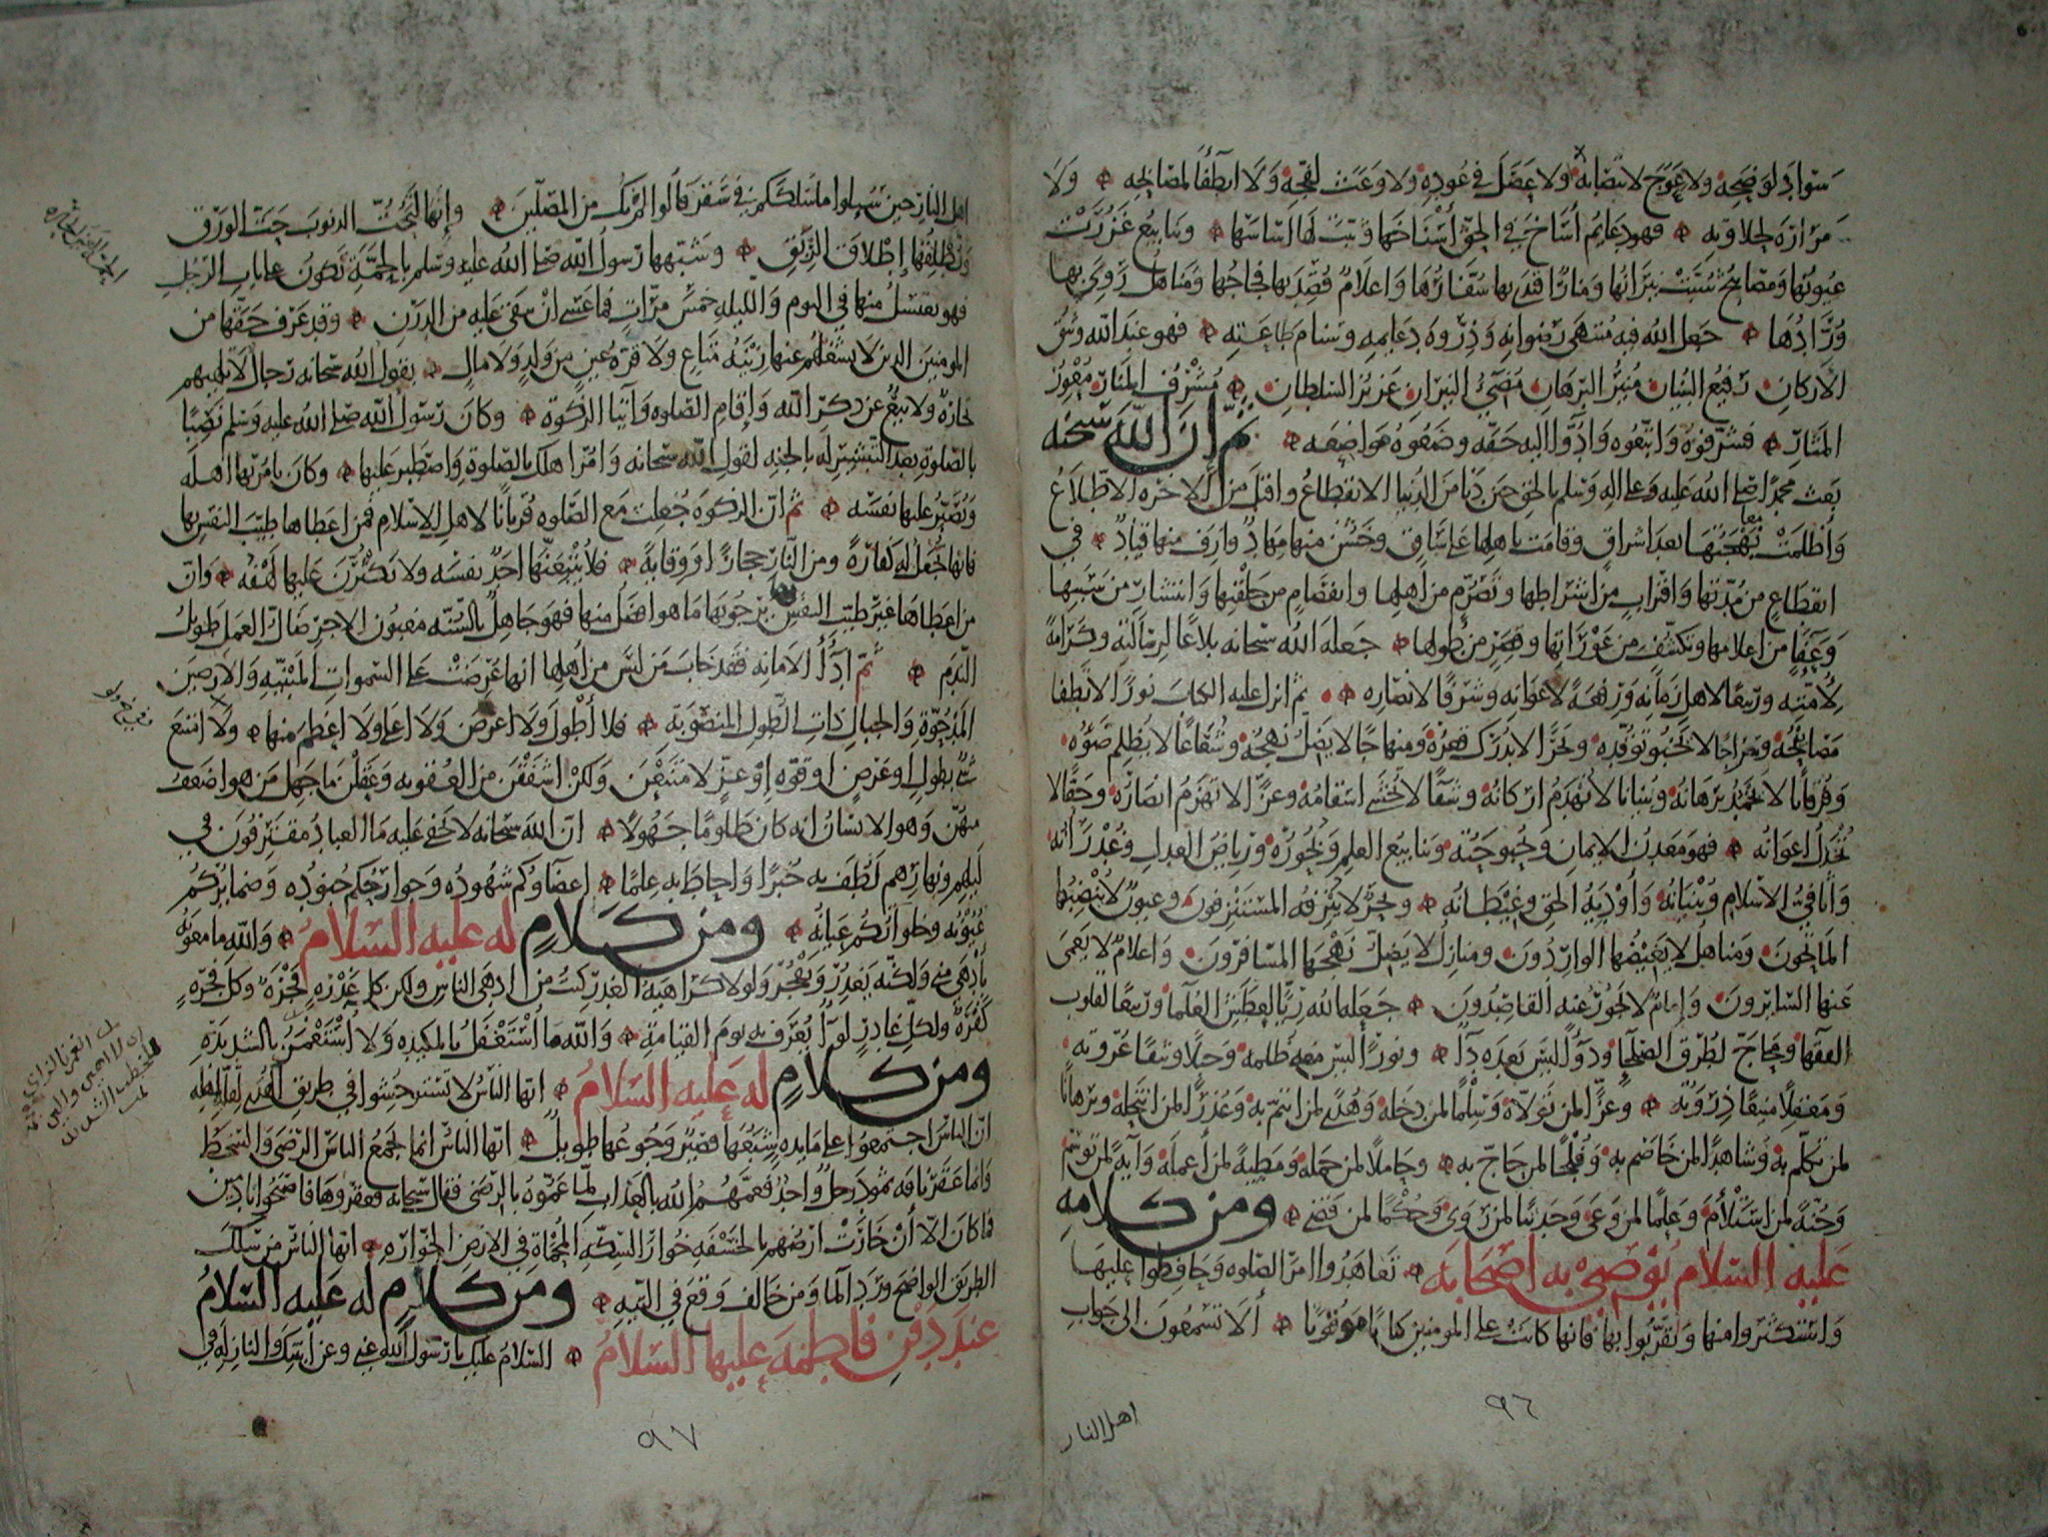 سواد لوضحه ولا عوج لانتصابه ولا عصل في عوده ولا وعث لفجه ولا انطفا لمصابحه ولا
مرارة لحلاوته فهو دعايم أساخ في الحق أسناخها وثبت لها اساسها وينابيع غزرت
عيونها ومصابيح شبت نيرانها ومنار اقتدى بها سفارها واعلام قصد بها فجاجها ومناهل روي بها
ورادها جعل الله فيه منتهى رضوانه وذروة دعايمه وسنام طاعته فهو عند الله وثيق
الاركان رفيع البنيان منير البرهان مضيئ النيران عزيز السلطان مشرف المنار معوز
المثار فشرفوه واتبعوه وادوا اليه حقه وضعوه مواضعه ثم ان الله سبحنه
بعث محمدا صلى الله عليه وعلى اله وسلم بالحق حين دنا من الدنيا الانقطاع واقبل من الاخرة الاطلاع
واظلمت بهجتها بعد اشراق وقامت باهلها على ساق وخشن منها مهاد وازف منها قياد في
انقطاع من مدتها واقتراب من اشراطها وتصرم من اهلها وانفصام من حلقتها وانتشار من سببها
وعفا من اعلامها وتكشف من عوراتها وقصر من طولها جعله الله سبحانه بلاغا لرسالته وكرامة
لأمته وربيعا لاهل زمانه ورفعة لاعوانه وشرفا لانصاره ثم انزل عليه الكتاب نورا لا تطفا
مصابيحه وسراجا لا يخبو توقده وبحرا لا يدرك قعره ومنهاجا لا يضل نهجه وشعاعا لا يظلم ضوءه
وفرقانا لا يخمد برهانه وبنيانا لا تهدم اركانه وشفا لا تخشى اسقامه وعزا لا تهزم انصاره وحقا لا
تخذل اعوانه فهو معدن الايمان وبحبوحته وينابيع العلم وبحوره ورياض العدل وغدرانه
واثافي الاسلام وبنيانه وأودية الحق وغيطانه وبحر لا ينزفه المستنزفون وعيون لا ينضبها
الماتحون ومناهل لا يغيضها الواردون ومنازل لا يضل نهجها المسافرون واعلام لا يعمى
عنها السايرون وإكام لا يجوز عنها القاصدون جعله الله ريا لعطش العلما وربيعا لقلوب
الفقها ومحاج لطرق الصلحا ودوا ليس بعده دا ونورا ليس معه ظلمه وحبلا وثيقا عروته
ومعقلا منيعا ذروته وعزا لمن تولاه وسلما لمن دخله وهدى لمن ائتم به وعذرا لمن انتحله وبرهانا
لمن تكلم به وشاهدا لمن خاصم به وفلجا لمن حاج به وحاملا لمن حمله ومطية لمن أعمله وآية لمن توسم
وجنة لمن استلأم وعلما لمن وعى وحديثا لمن روى وحكما لمن قضى ومن كلامه
عليه السلام يوصي به اصحابه تعاهدوا امر الصلوة وحافظوا عليها
واستكثروا منها وتقربوا بها فانها كانت على المومنين كتابا موقوتا ألا تسمعون الى جواب
اهل النار
٩٦
اهل النار حين سيلوا ما سلككم في سقر قالوا لم نك من المصلين وإنها لتحت الذنوب حت الورق
وتطلقها إطلاق الربق وشبهها رسول الله صلى الله عليه وسلم بالحمة تكون على باب الرجل
فهو يغتسل منها في اليوم والليلة خمس مرات فما عسى ان يبقى عليه من الدرن وقد عرف حقها من
المومنين الذين لا يشغلهم عنها زينة متاع ولا قرة عين من ولد ولا مال يقول الله سبحانه رجال لا تلهيهم
تجارة ولا بيع عن ذكر الله وإقام الصلوه وآيتا الزكوة وكان رسول الله صلى الله عليه وسلم نصبا
بالصلوة بعد التبشير له بالجنة لقول الله سبحانه وامر اهلك بالصلوة واصطبر عليها وكان يامر بها اهله
ويصبر عليها نفسه ثم ان الزكوة جعلت مع الصلوه قربانا لاهل الاسلام فمن اعطاها طيب النفس بها
فانها تجعل له كفارة ومن النار حجازا ووقاية فلا يتبعنها احد نفسه ولا يكثرن عليها لهفه وان
من اعطاها غير طيب النفس يرجو بها ما هو افضل منها فهو جاهل بالسنه مغبون الاجر ضال العمل طويل
الندم ثم ادآ الامانه فقد خاب من ليس من اهلها انها عرضت على السموات المبنية والارضين
المدحوة والجبال ذات الطول المنصوبة فلا أطول ولا اعرض ولا اعلى ولا اعظم منها ولا امتنع
شي بطول او عرض او قوه او عز لامتنعن ولكن اشفقن من العقوبه وعقلن ما جهل من هو اضعف
منهن وهو الانسان انه كان ظلوما جهولا ان الله سبحانه لا يخفى عليه ما العباد مقترفون في
ليلهم ونهارهم لطف به خبرا واحاط به علما اعضاوكم شهوده وجوارحكم جنوده وضمايركم
عيونه وخلواتكم عيانه ومن كلام له عليه السلام والله ما معوية
بأدهى مني ولكنه يغدر ويفجر ولولا كراهية الغدر كنت من ادهى الناس ولكن كل غدرة فجرة وكل فجرة
كفرة ولكل غادر لوآ يعرف به يوم القيامة والله ما أستغفل بالمكيدة ولا أستغمز بالشديدة
ومن كلام له عليه السلام ايها الناس لا تستوحشوا في طريق الهدى لقلة اهله
ان الناس اجتمعوا على مايدة شبعها قصير وجوعها طويل ايها الناس انما يجمع الناس الرضى والسخط
وانما عقر ناقه ثمود رجل واحد فعمهم الله بالعذاب لما عموه بالرضى فقال سبحانه فعقروها فاصبحوا نادمين
فما كان الا أن خارت ارضهم بالخسفه خوار السكه المحماة في الارض الخوارة ايها الناس من سلك
الطريق الواضح ورد الما ومن خالف وقع في التيه ومن كلام له عليه السلام
عند دفن فاطمه عليها السلام السلام عليك يا رسول الله عني وعن ابنتك النازلة في
٩٧